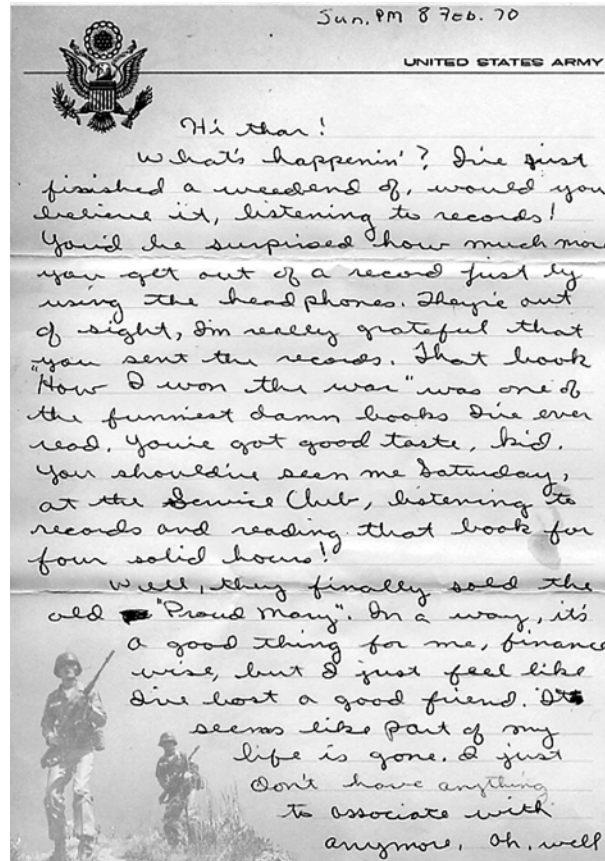 Sun. PM 8 Feb. 70
UNITED STATES ARMY
Hi thar!
What's happenin'? I've just
finished a weekend of, would you
believe it, listening to records!
You'd be surprised how much more
you get out of a record just by
using the headphones. They're out
of sight, I'm really grateful that
you sent the records. That book
"How I won the war" was one of
the funniest damn books I've ever
read. You've got good taste, kid.
You should've seen me Saturday,
at the Service Club, listening to
records and reading that book for
four solid hours!
Well, they finally sold the
old "Proud Mary". In a way, it's
a good thing for me, finance
wise, but I just feel like
I've lost a good friend. It
seems like part of my
life is gone. I just
don't have anything
to associate with
anymore. Oh, well